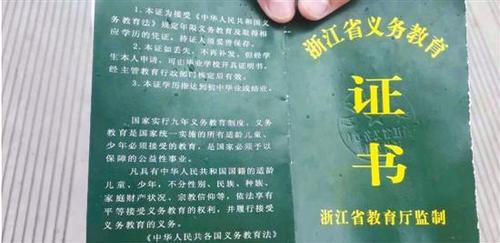 1.本证为接受《中华人民共和国义
务教育法》规定年限义务教育及取得相
应学历的凭证。持证人须妥善保存。
2.本证如丢失，不再补发，但经学
生本人申请，可由毕业学校开具证明书，
经主管教育行政部门核定后有效。
3.本证学历指达到初中毕业或结业。
国家实行九年义务教育制度，义务
教育是国家统一实施的所有适龄儿童、
少年必须接受的教育，是国家必须予以
保障的公益性事业。
凡具有中华人民共和国国籍的适龄
儿童、少年，不分性别、民族、种族、
家庭财产状况、宗教信仰等，依法享有
平等接受义务教育的权利，并履行接受
义务教育的义务。
《中华人民共各国义务教育法》
浙江省义务教育
证
书
浙江省教育厅监制